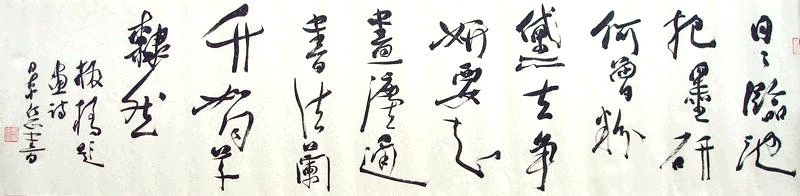 日々臨池
把墨研
何曾粉
黛去争
妍要知
畫灋通
書法蘭
竹如同草
隸然
板橋題
畫詩
書